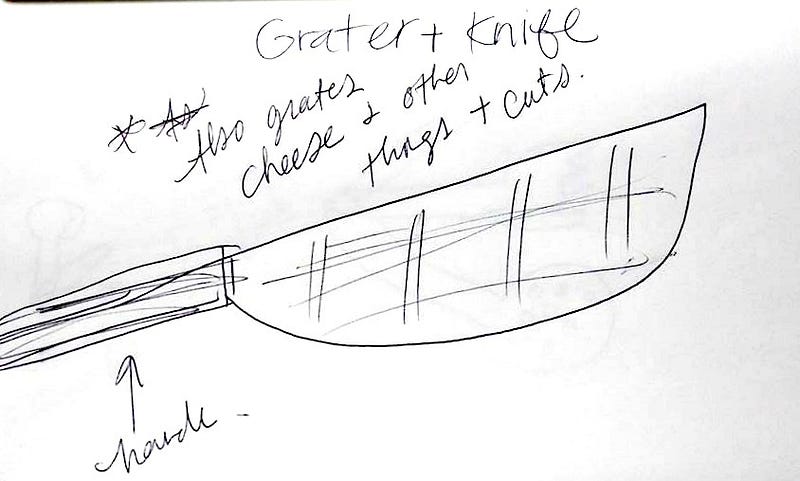 Grater + Knife
* Also grates
cheese & other
things + cuts.
hande